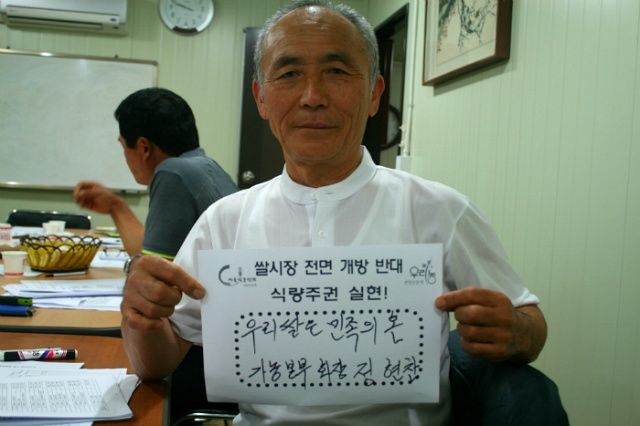 쌀시장 전면 개방 반대
식량주권 실현!
우리쌀은 민족의 혼
가농 본부 회장 정 현찬